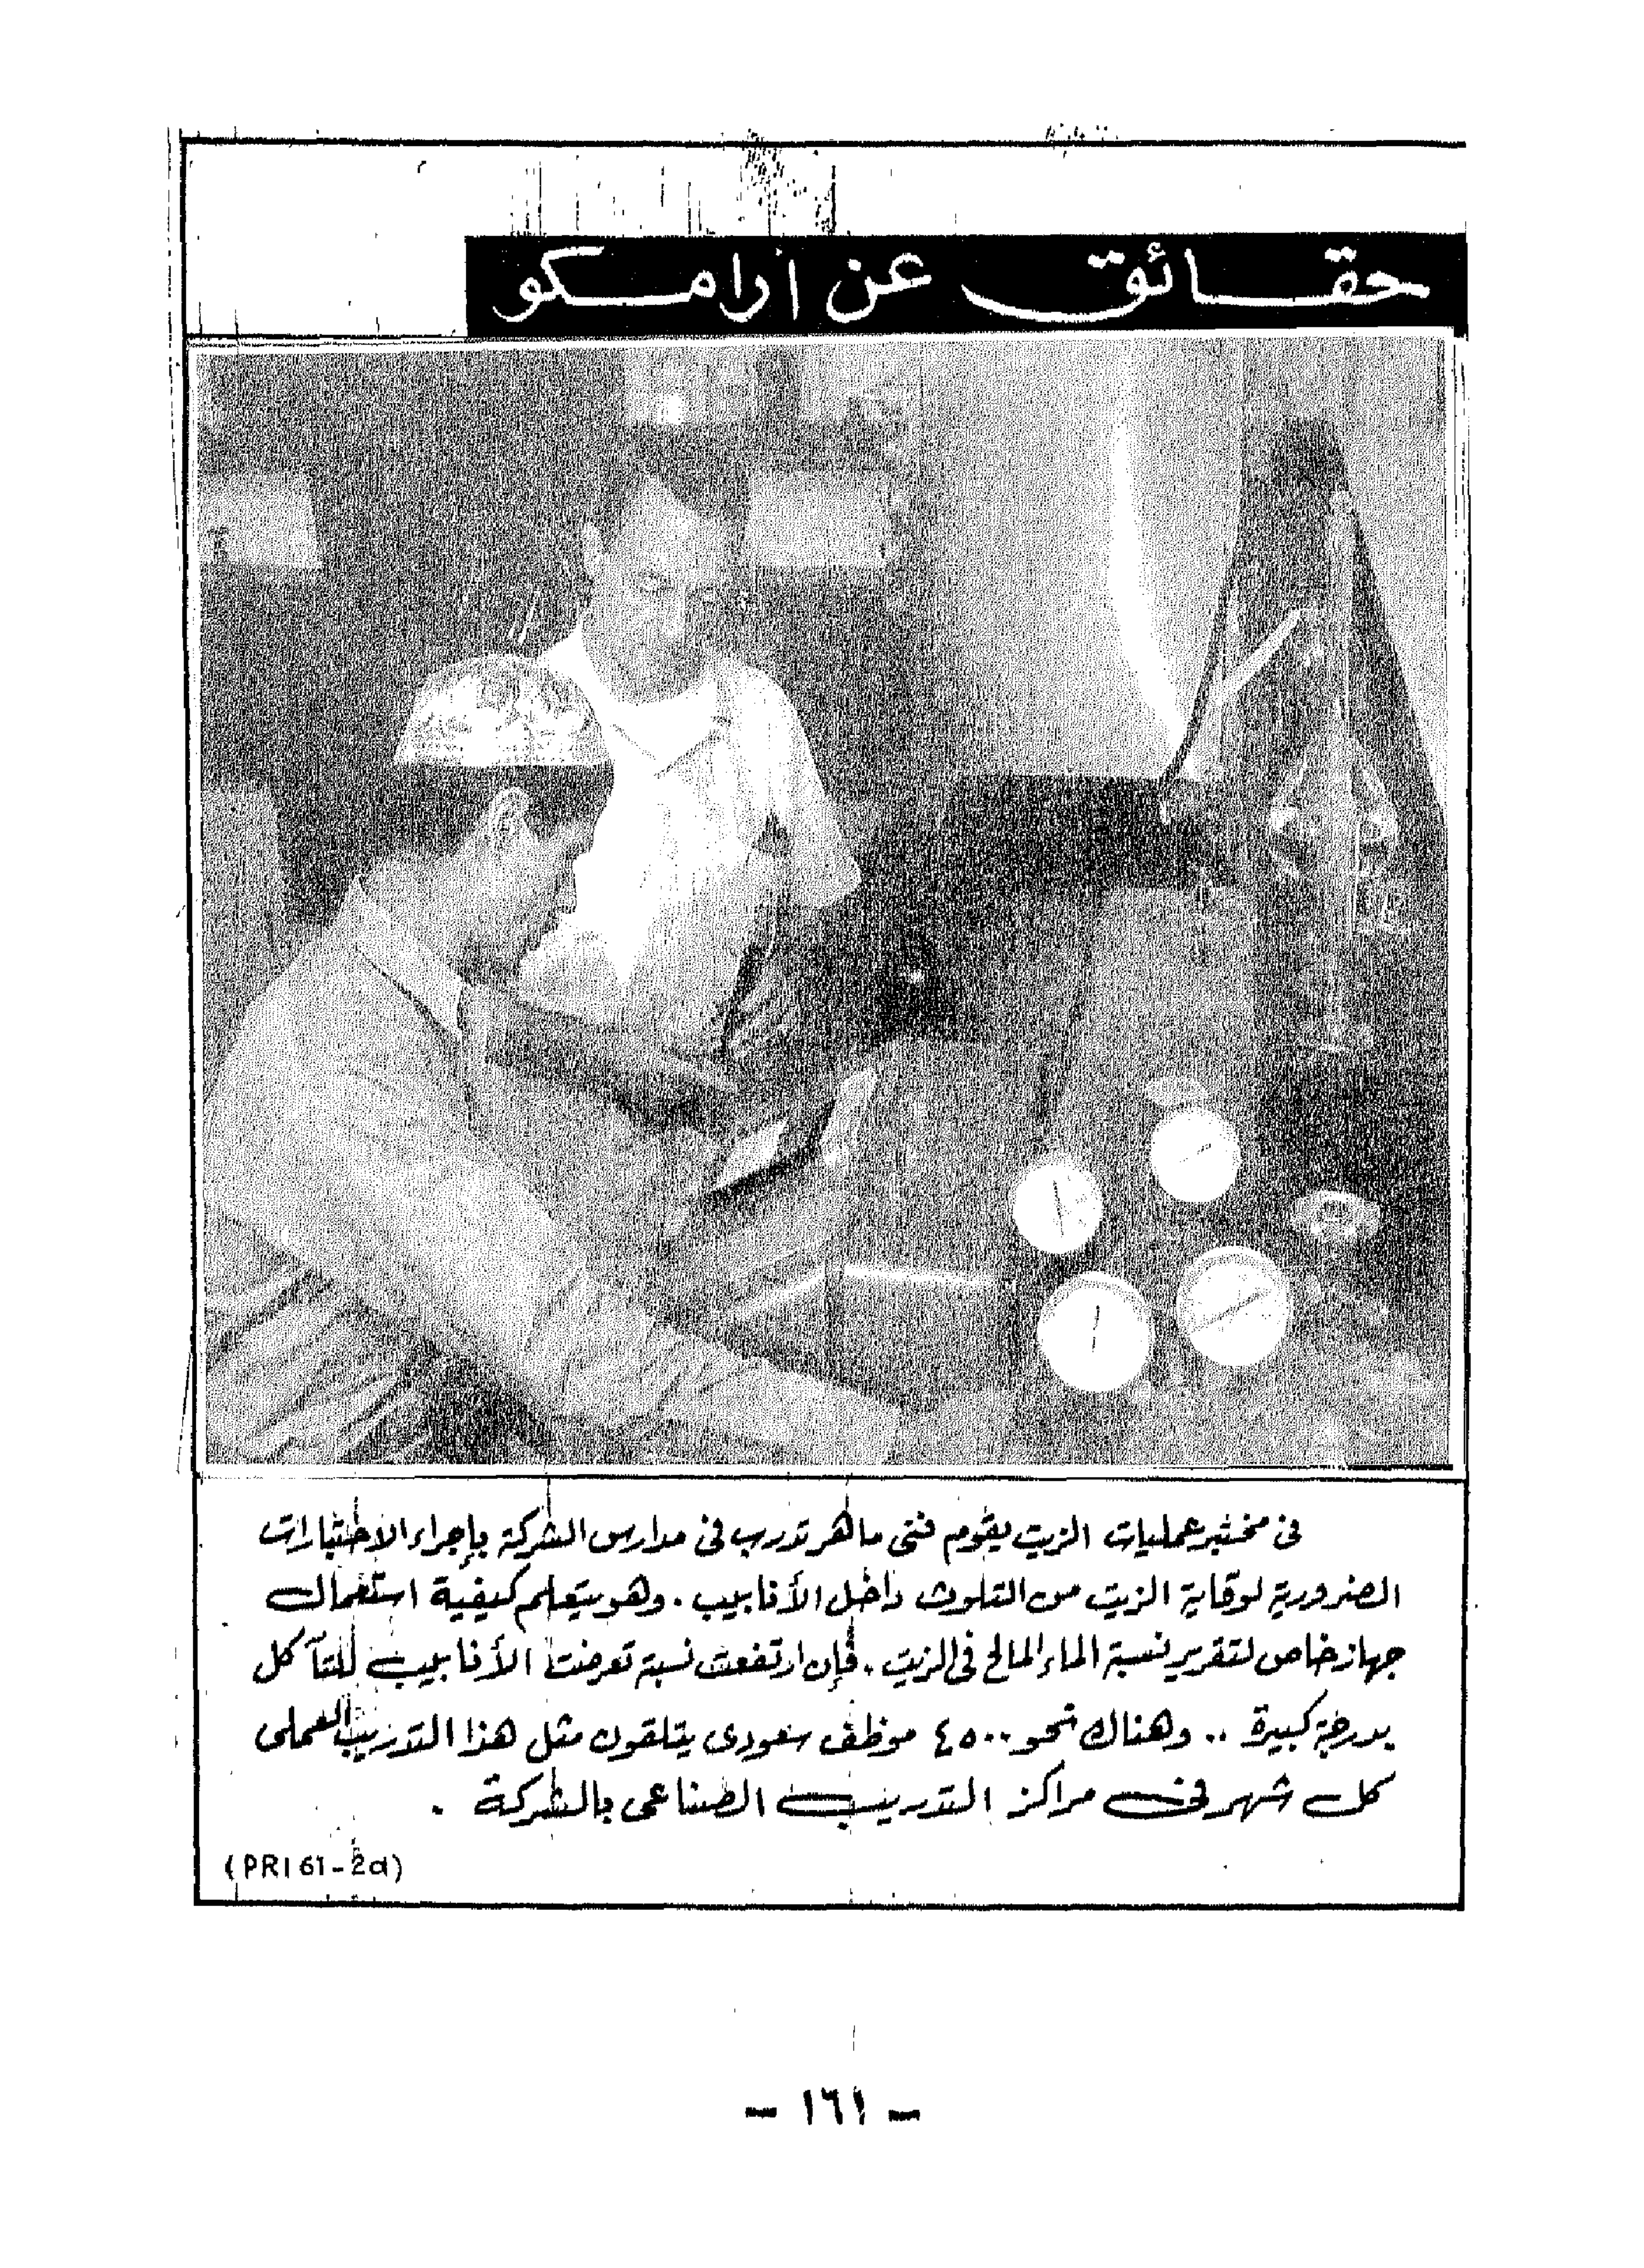 حقائق عن أرامكو
فى مختبر عمليات الزيت يقوم فنى ماهر تدرب فى مدارس الشركة بإجراء الاختبارات
الضرورية لوقاية الزيت من التلوث داخل الأنابيب . وهو يتعلم كيفية استعمال
جهاز خاص لتقرير نسبة الماء المالح فى الزيت . فإن ارتفعت نسبة تعرضت الأنابيب للتآكل
بدرجة كبيرة .. وهناك نحو ٤٥٠٠ موظف سعودى يتلقون مثل هذا التدريب العملى
كل شهر فى مراكز التدريب الصناعى بالشركة .
(PRI 61-2a)
- ١٦١ -